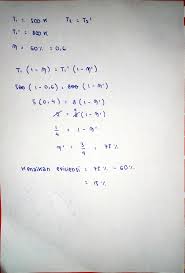 T₁ = 500 K     T₂ = T₂'
T₁' = 800 K
η = 60% = 0,6
T₁ (1 - η) = T₁' (1 - η')
500 (1 - 0,6) = 800 (1 - η')
5 (0,4) = 8 (1 - η')
2 = 8 (1 - η')
1/4 = 1 - η'
η' = 3/4 = 75%
Kenaikan efisiensi = 75% - 60%
= 15%